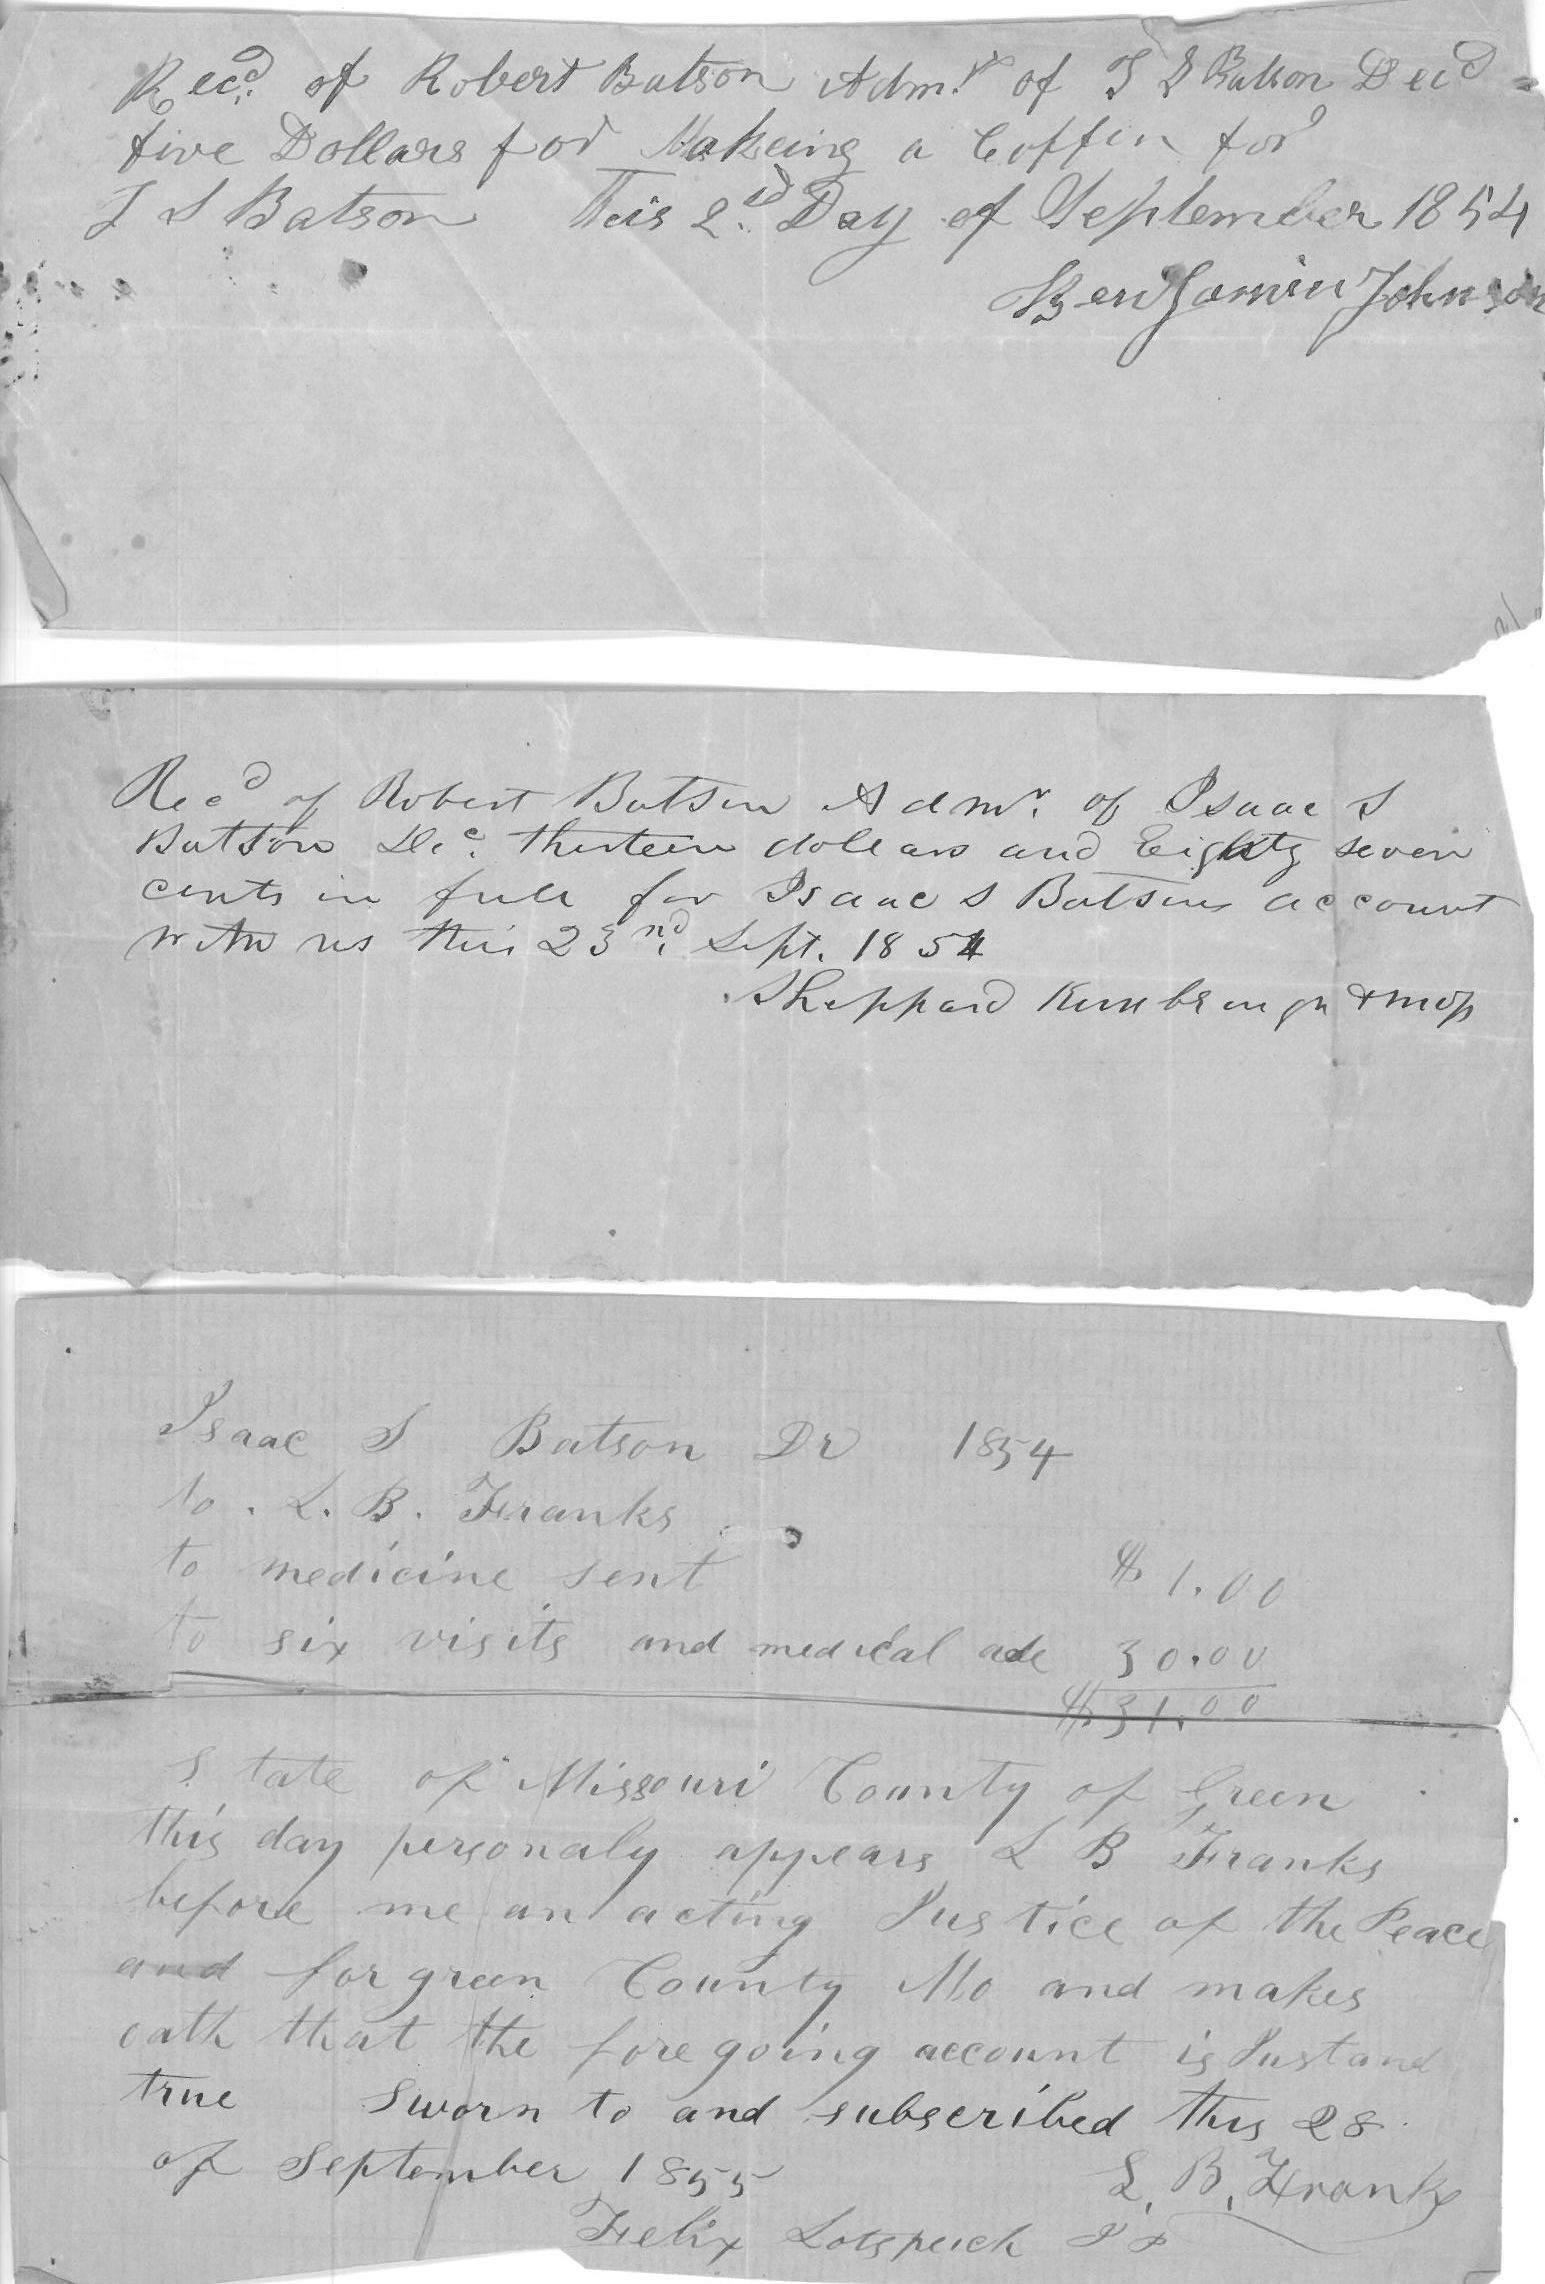 Recd. of Robert Batson Admr. of I S Batson Decd
five Dollars for Makeing a Coffin for
I S Batson This 2.d Day of September 1854
Benjamin Johnson
Recd of Robert Batson Admr. of Isaac S
Batson Dec. thirteen dollars and Eighty seven
cents in full for Isaac S Batsons account
with us this 23nd. Sept. 1854
Sheppard Kimbrough &
Isaac S Batson Dr 1854
to . L. B. Franks
to medicine sent $1.00
to six visits and medical ade 30.00
$31.00
State of Missouri County of Green
this day personaly appears L B Franks
before me an acting Justice of the Peace
and for green County Mo and makes
oath that the fore going account is Just and
true Sworn to and subscribed this 28
of September 1855 L. B. Franks
Felix Lotspeich J P